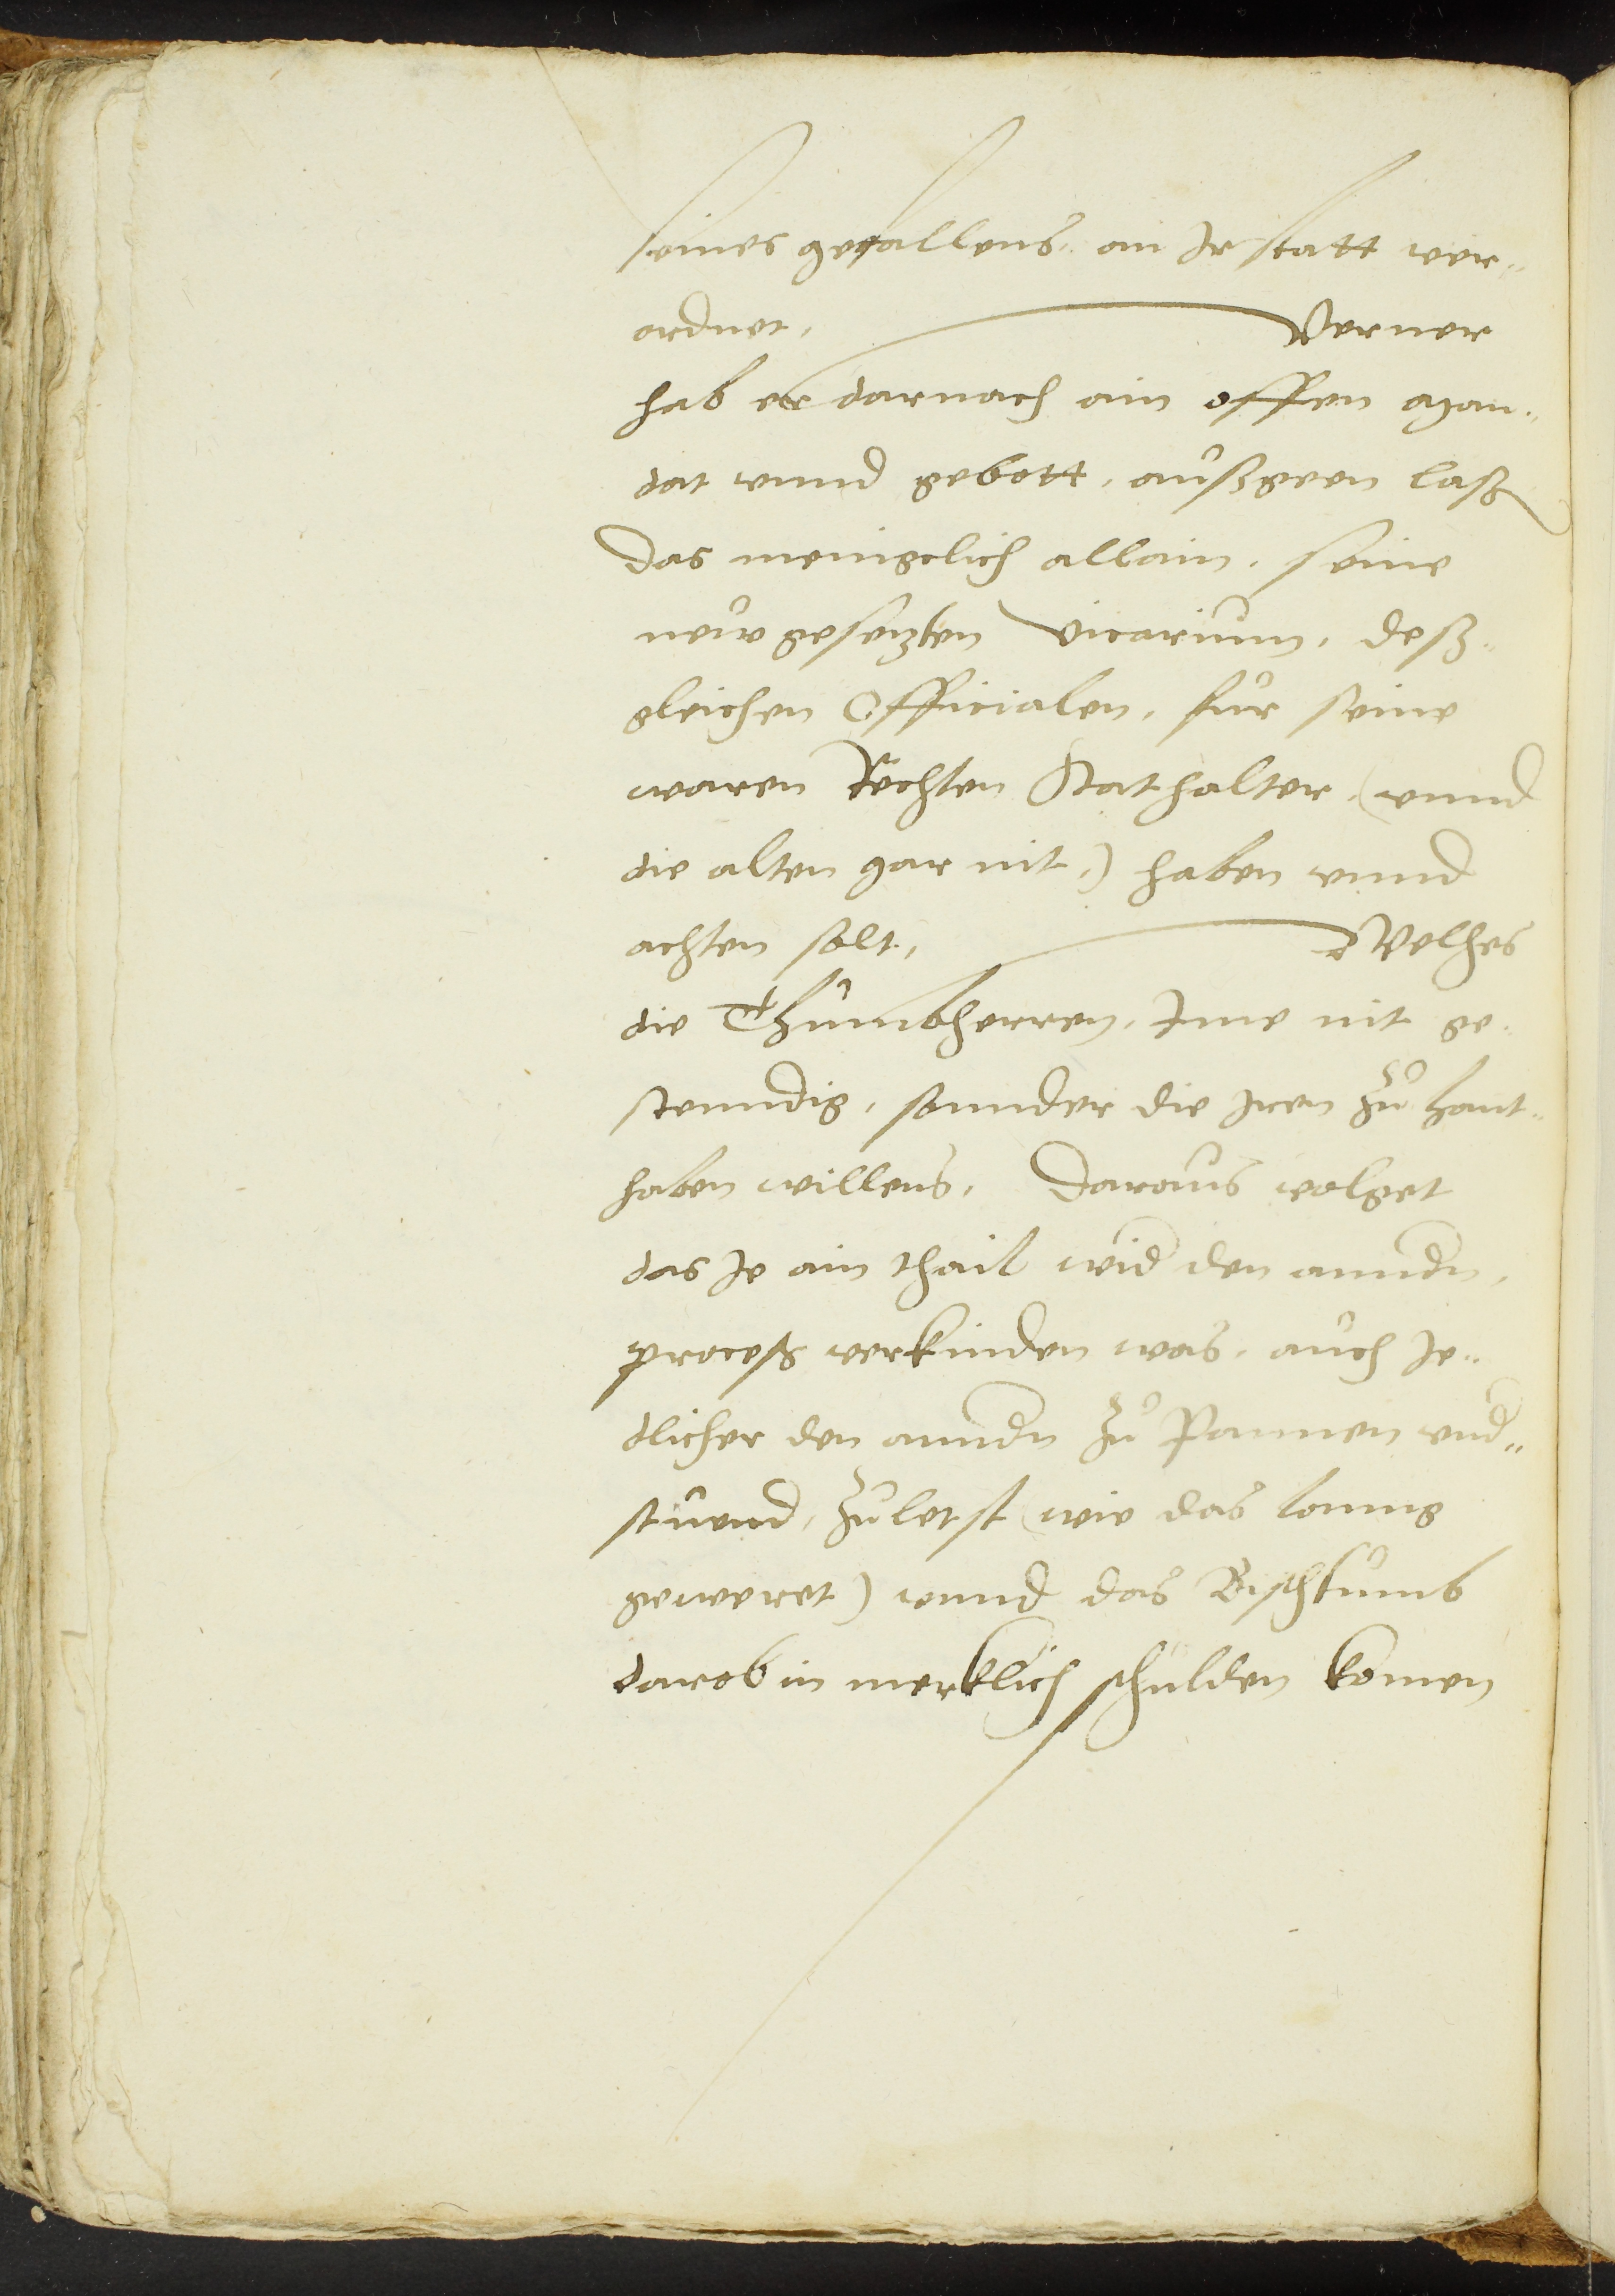 seines gefallens, an Ir statt ver¬
ordnet, Verner
hab er darnach ain offen man¬
dat vnnd gebott, außgeen laß
Das menigclich allain, seine
new gesetzten Vicarium, deß¬
gleichen Officialen, für seine
waren Rechten Stathalter, (vnnd
die alten gar nit,) haben vnnd
achten solt, Welhes
die Thumbherren, Ime nit ge¬
stenndig, sonnder die Iren zů hant¬
haben willens, Daraus volget
das Je ain thail wid den anndn,
proceß verkinden was, auch Je¬
dlicher den anndn zů Pannen vnd¬
stuend, zuletst (wie das lanng
geweret) vnnd das Bischtumb
darob in merklich schulden komen